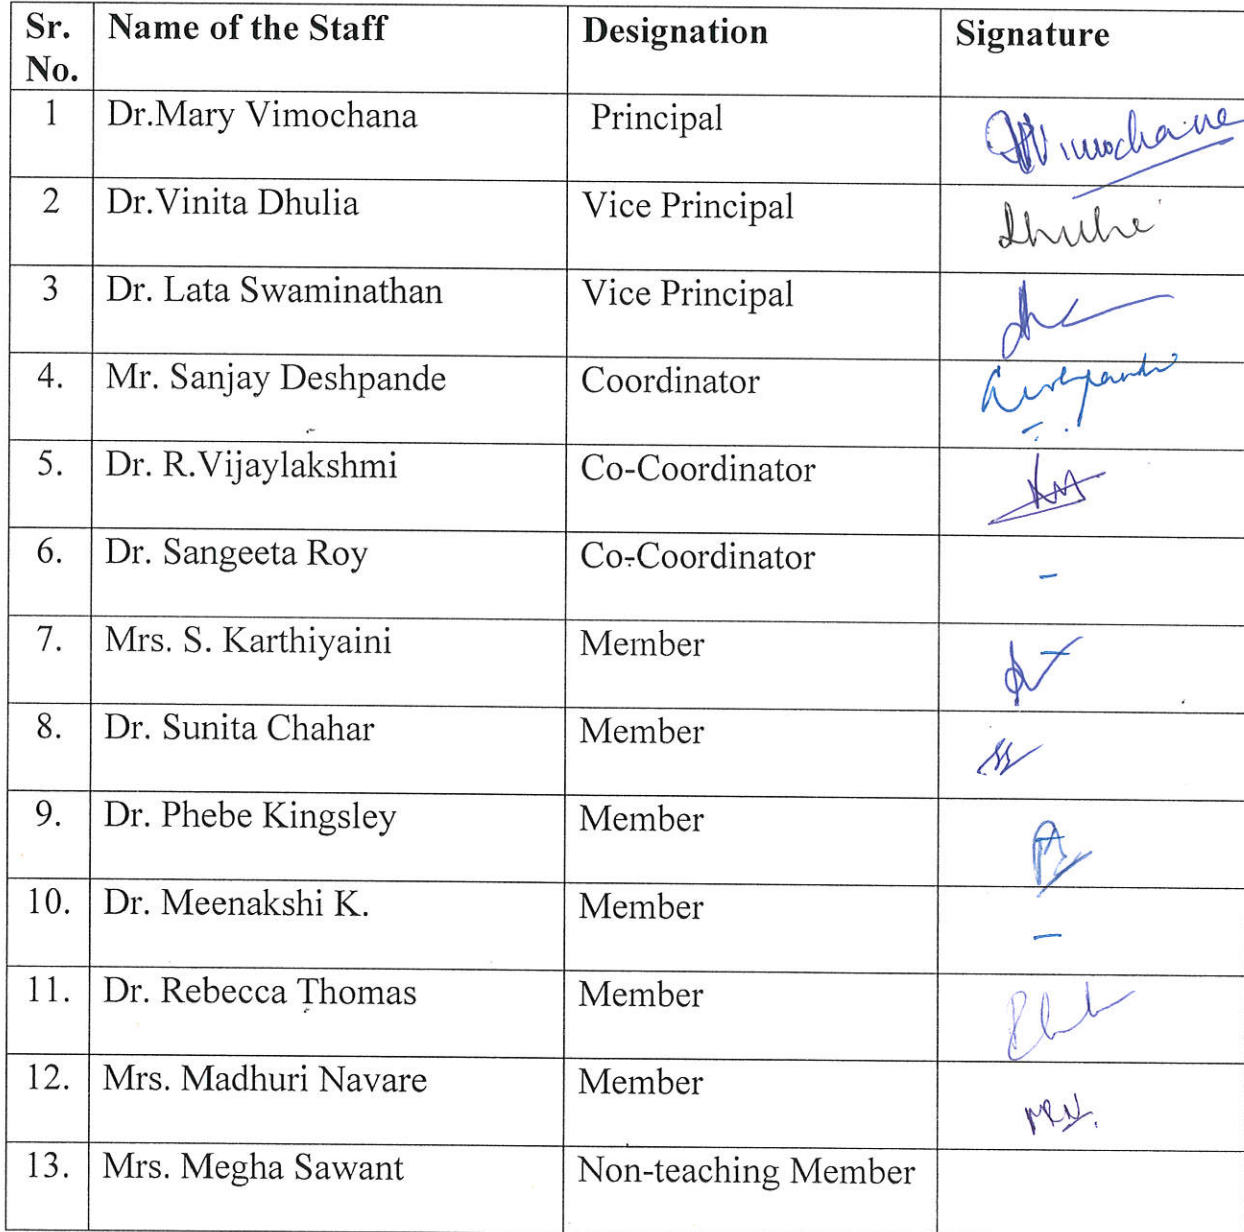 Sr. No. Name of the Staff Designation Signature
1 Dr.Mary Vimochana Principal Vimochana
2 Dr.Vinita Dhulia Vice Principal
3 Dr. Lata Swaminathan Vice Principal
4. Mr. Sanjay Deshpande Coordinator
5. Dr. R.Vijaylakshmi Co-Coordinator
6. Dr. Sangeeta Roy Co-Coordinator -
7. Mrs. S. Karthiyaini Member
8. Dr. Sunita Chahar Member
9. Dr. Phebe Kingsley Member
10. Dr. Meenakshi K. Member -
11. Dr. Rebecca Thomas Member
12. Mrs. Madhuri Navare Member MRN.
13. Mrs. Megha Sawant Non-teaching Member